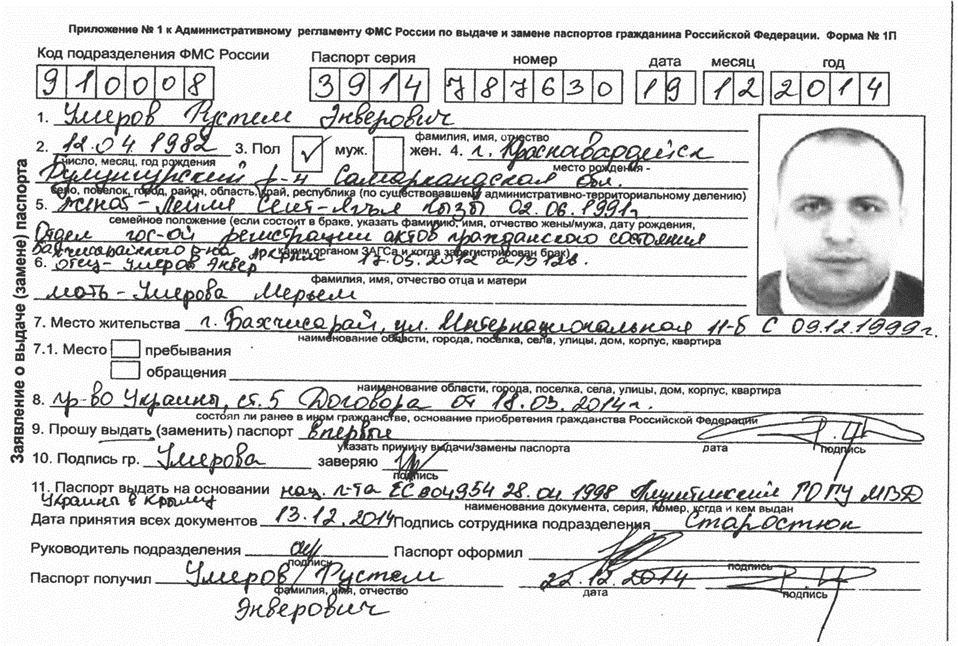 Приложение № 1 к Административному регламенту ФМС России по выдаче и замене паспортов гражданина Российской Федерации. Форма № 1П
Код подразделения ФМС России Паспорт серия номер дата месяц год
910008 3914 787630 19 12 2014
Заявление о выдаче (замене) паспорта
1. Умеров Рустем Энверович
фамилия, имя, отчество
2. 12.04.1982 3. Пол ✓ муж. жен. 4. г. Красногвардейск
число, месяц, год рождения место рождения -
р-н Самаркандская обл.
село, поселок, город, район, область, край, республика (по существовавшему административно-территориальному делению)
5. женат - Лейля Сеит-Ягъя кызы 02.06.1991г.
семейное положение (если состоит в браке, указать фамилию, имя, отчество жены/мужа, дату рождения,
Отдел гос-ой регистрации актов гражданского состояния
каким органом ЗАГСа и когда зарегистрирован брак)
Бахчисарайского р-на
6. отец - Умеров Энвер
фамилия, имя, отчество отца и матери
мать - Умерова Мерьем
7. Место жительства г. Бахчисарай, ул. Интернациональная 11-б с 09.12.1999г.
наименование области, города, поселка, села, улицы, дом, корпус, квартира
7.1. Место пребывания
обращения
наименование области, города, поселка, села, улицы, дом, корпус, квартира
8. гр-во Украины, ст.5 Договора от 18.03.2014г.
состоял ли ранее в ином гражданстве, основание приобретения гражданства Российской Федерации
9. Прошу выдать (заменить) паспорт впервые
указать причину выдачи/замены паспорта дата подпись
10. Подпись гр. Умерова заверяю
подпись
11. Паспорт выдать на основании нац. п-та ЕС 004954 28.04.1998 ГОПУ МВД
Украины в Крыму наименование документа, серия, номер, когда и кем выдан
Дата принятия всех документов 13.12.2014 Подпись сотрудника подразделения Старостюк
Руководитель подразделения Паспорт оформил
подпись подпись
Паспорт получил Умеров Рустем 22.12.2014
фамилия, имя, отчество дата подпись
Энверович